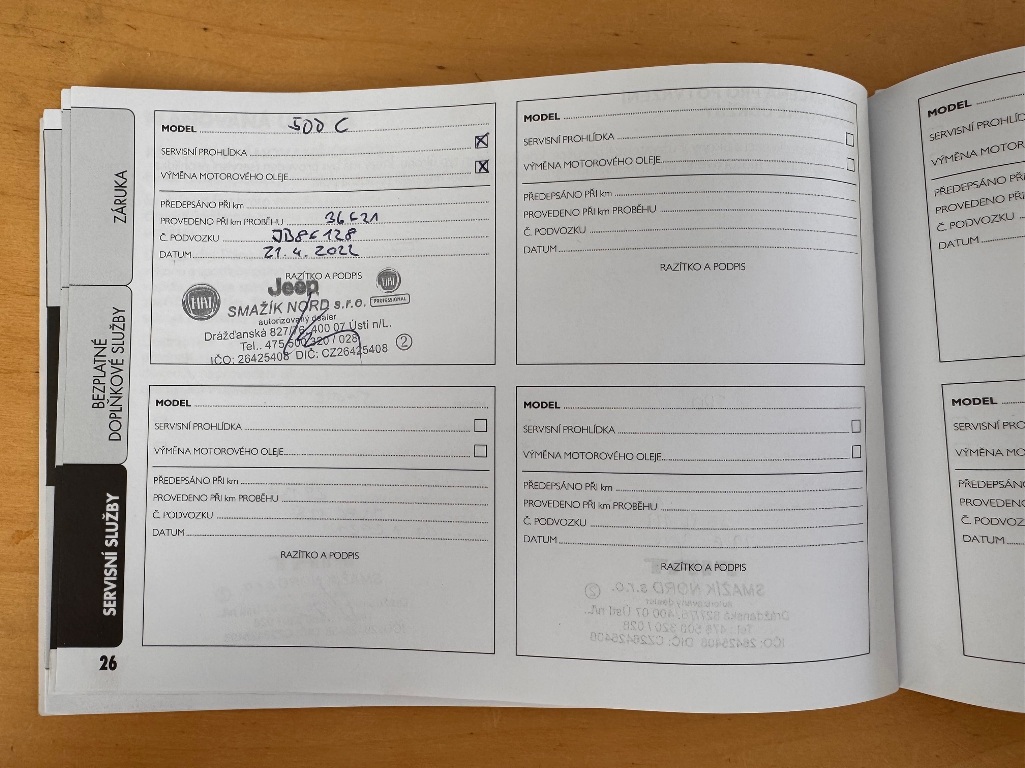 ZÁRUKA
BEZPLATNÉ
DOPLŇKOVÉ SLUŽBY
SERVISNÍ SLUŽBY
26
MODEL 500 C
SERVISNÍ PROHLÍDKA X
VÝMĚNA MOTOROVÉHO OLEJE X
PŘEDEPSÁNO PŘI km
PROVEDENO PŘI km PROBĚHU 36621
Č. PODVOZKU JB86128
DATUM 21. 4. 2022
RAZÍTKO A PODPIS
Jeep
FIAT
FIAT
PROFESSIONAL
SMAŽÍK NORD s.r.o.
autorizovaný dealer
Drážďanská 827/76, 400 07 Ústí n/L.
Tel.. 475 500 320 / 028
IČO: 26425408 DIČ: CZ26425408 2
MODEL
SERVISNÍ PROHLÍDKA
VÝMĚNA MOTOROVÉHO OLEJE
PŘEDEPSÁNO PŘI km
PROVEDENO PŘI km PROBĚHU
Č. PODVOZKU
DATUM
RAZÍTKO A PODPIS
MODEL
SERVISNÍ PROHLÍDKA
VÝMĚNA MOTOROVÉHO OLEJE
PŘEDEPSÁNO PŘI km
PROVEDENO PŘI km PROBĚHU
Č. PODVOZKU
DATUM
RAZÍTKO A PODPIS
MODEL
SERVISNÍ PROHLÍDKA
VÝMĚNA MOTOROVÉHO OLEJE
PŘEDEPSÁNO PŘI km
PROVEDENO PŘI km PROBĚHU
Č. PODVOZKU
DATUM
RAZÍTKO A PODPIS
MODEL
SERVISNÍ PROHLÍD
VÝMĚNA MOTOR
PŘEDEPSÁNO PŘI
PROVEDENO PŘI
Č. PODVOZKU
DATUM
MODEL
SERVISNÍ PRO
VÝMĚNA MO
PŘEDEPSÁN
PROVEDENO
Č. PODVOZK
DATUM